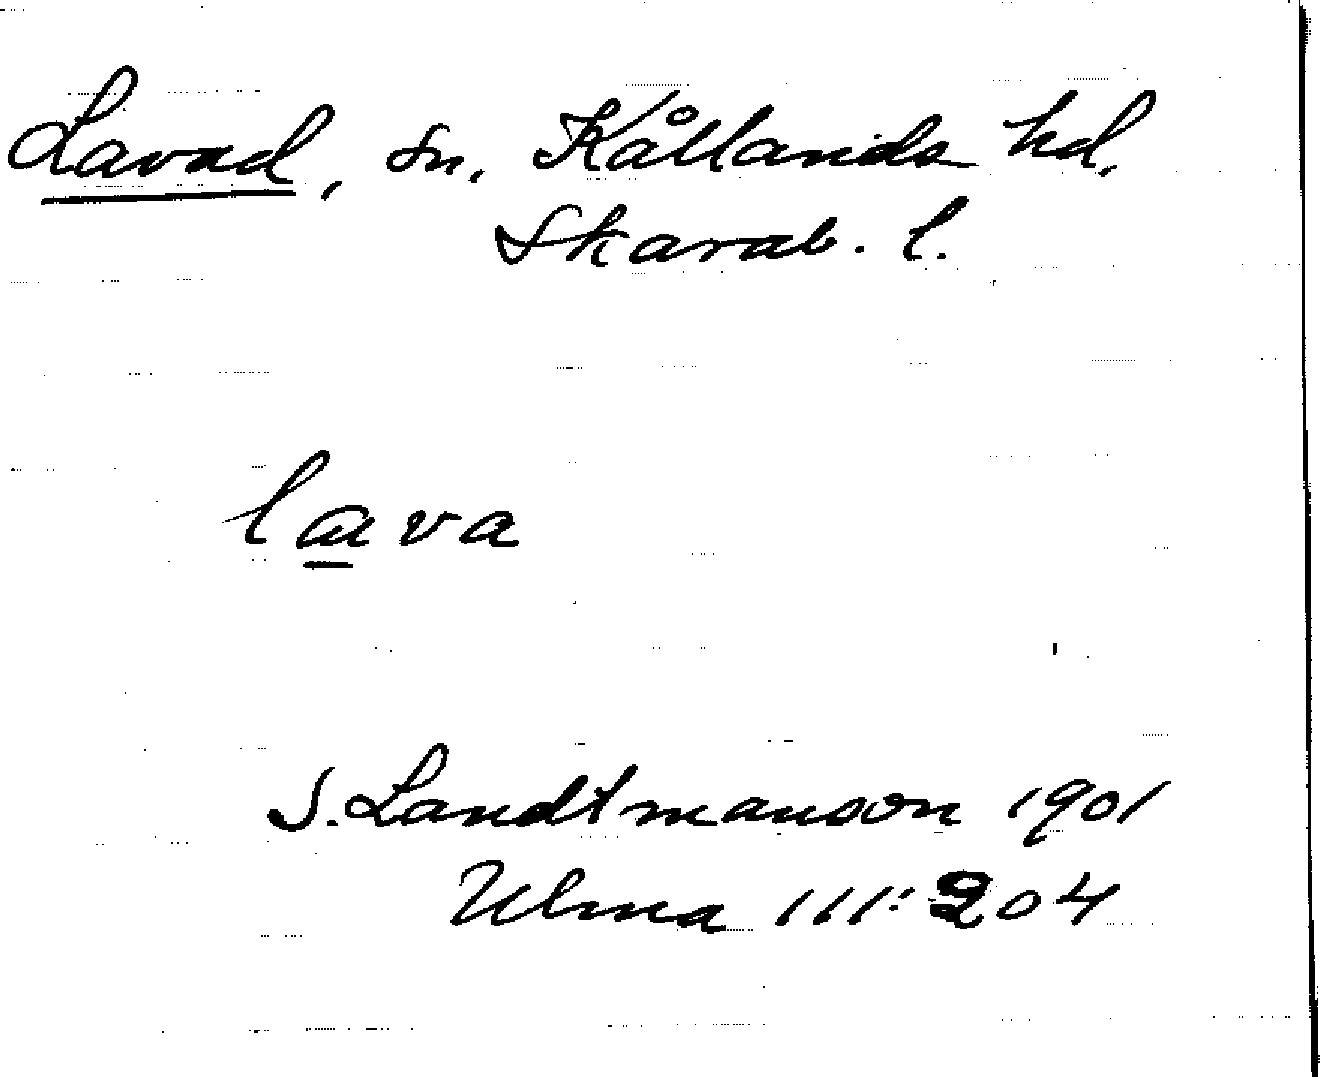 Lavad, sn. Kållands hd.
Skarab. l.
lava
S. Landtmanson 1901
Ulma 111:204